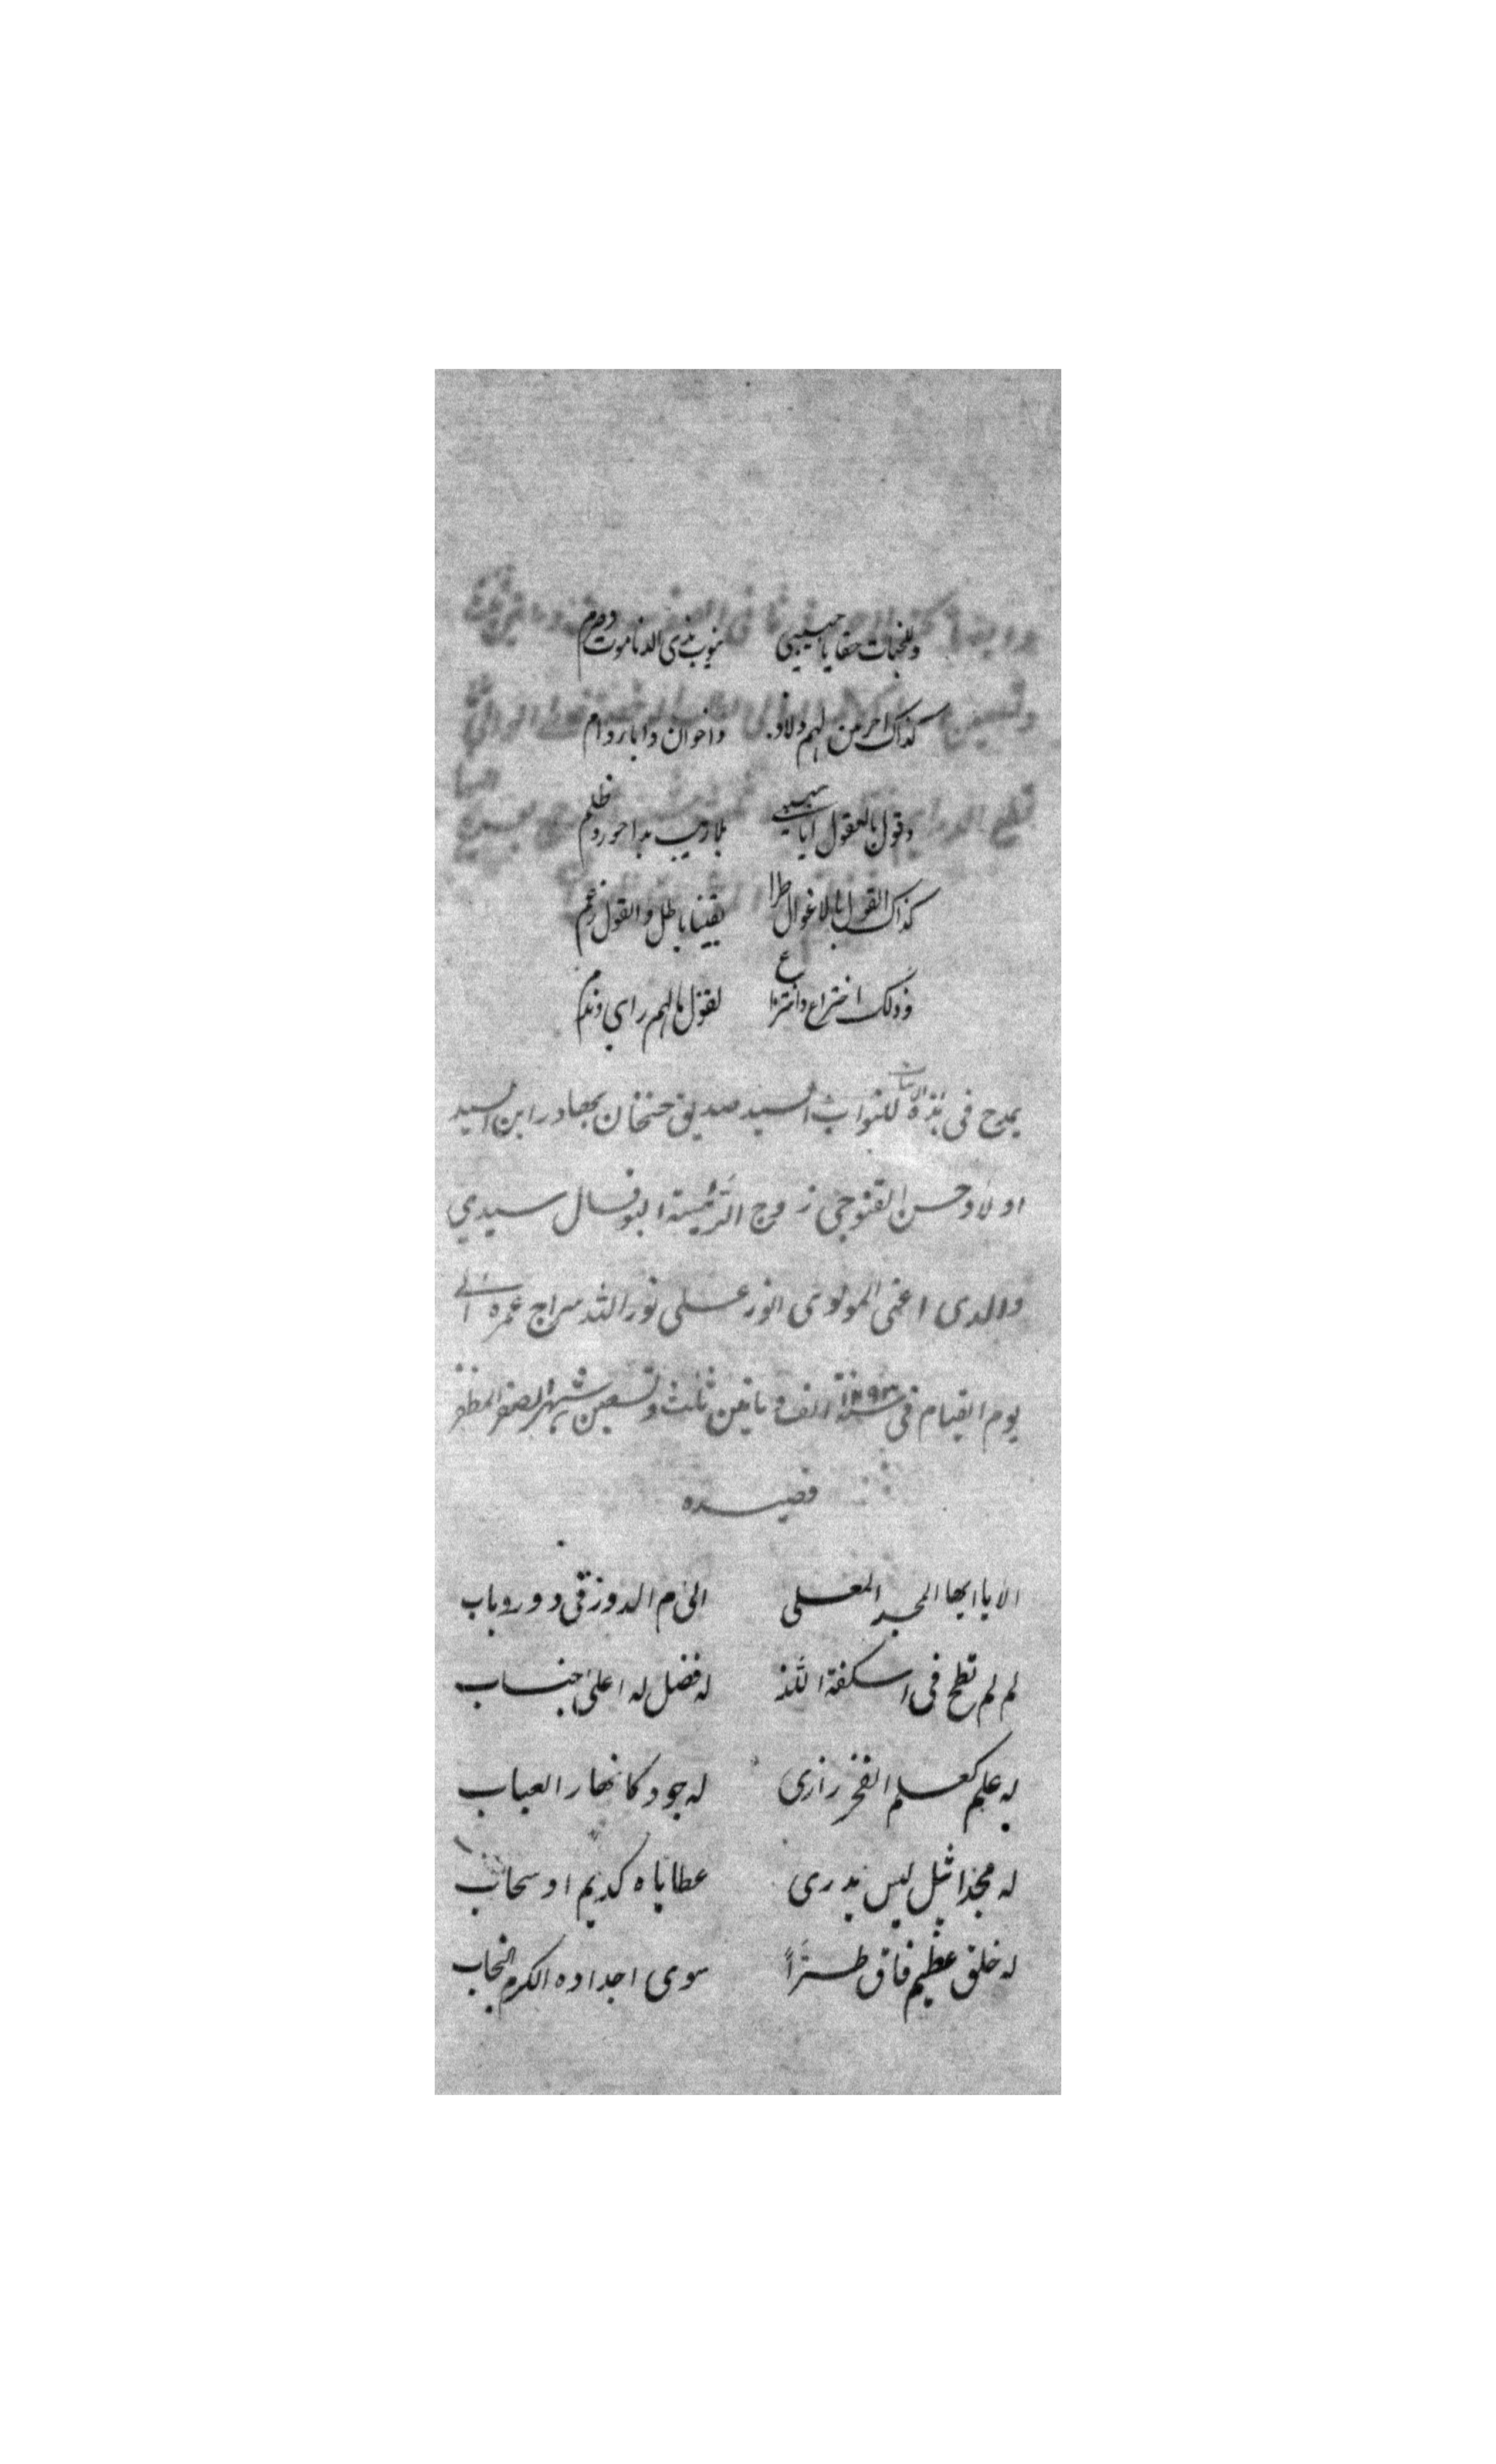 وللخبات حقا يا حبيبي ينوب بذى الدنا موت وصرم
كذاك احر من لهم ولاد واخوان وابا روام
وقول بالعقول ايا بلا ريب بدا جور وظلم
كذاك القول بالاغوال طرا يقينا باطل والقول زعم
وذلك اختراع وافتراء لقول مالهم راي و
يمدح فى هذه الابيات للنواب السيد صديق حسنخان بهادر ابن السيد
اولاد حسن القنوجى زوج الرئيسة البوفال سيدي
والدى اعنى المولوى انور على نور الله سراج عمره الى
يوم القيام فى سنة ١٢٩٣ الف و ماتين ثلث وتسعين شهر الصفر المظفر
قصيده
الا يا ايها المجد المعلى الى م الدوز فى دور وباب
لم لم تطح فى اسكفة اللذ له فضل له اعلى جناب
له علم كعلم الفخر رازى له جود كانهار العباب
له مجد اثيل ليس يدرى عطاياه كديم او سحاب
له خلق عظيم فاق طرًّا سوى اجداده الكرم النجاب